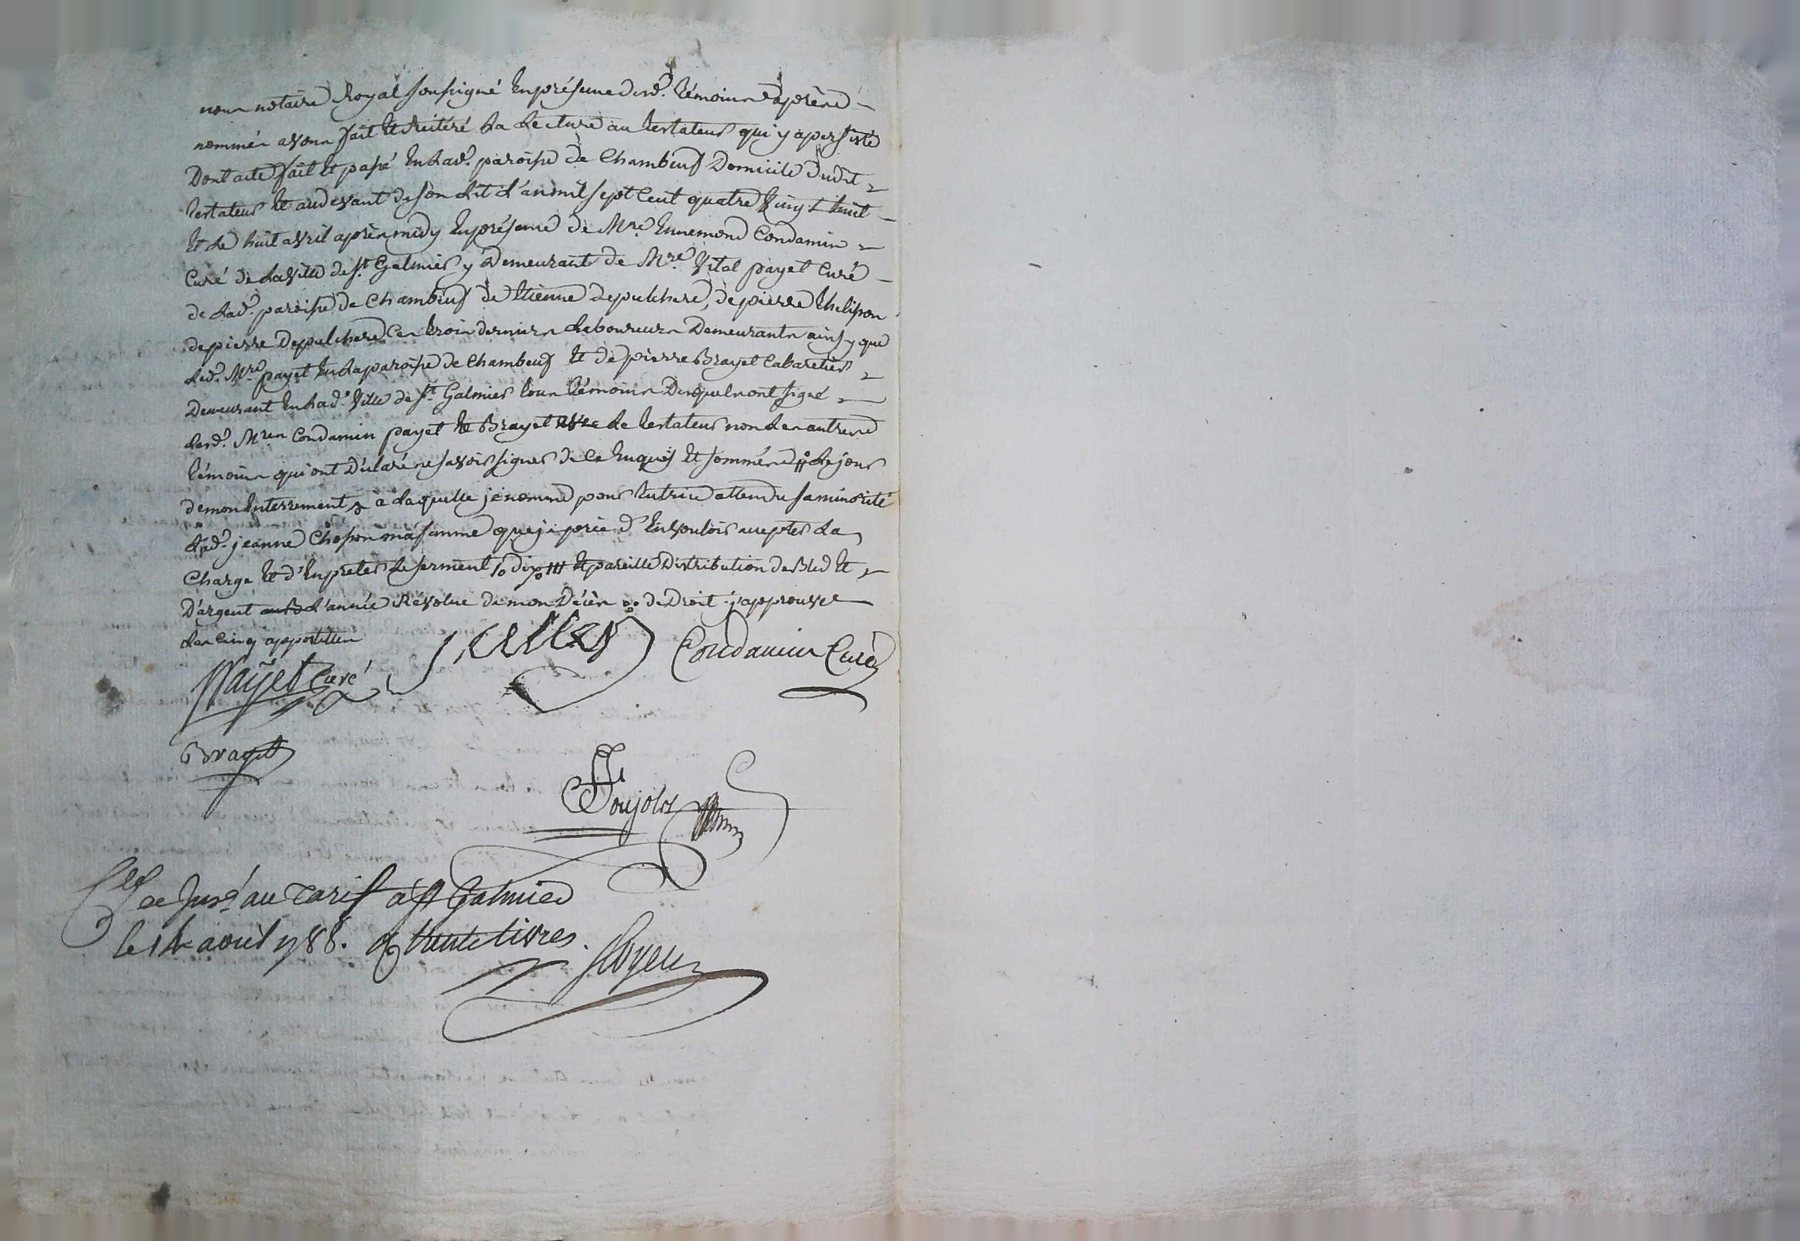 nous notaire Royal soussigné En présence desd. témoins Après
nommés avons fait Et Réitéré La Lecture au Testateur qui y a persisté
Dont acte fait Et passé En Lad. paroisse de Chambeuf Domicile dudit
testateur Et au devant de son Lit L'an mil sept Cent quatre Vingt huit
Et Le huit avril après midy En présence de Mre Ennemond Condamin
Curé de La Ville de St Galmier y Demeurant de Mre Vital payet Curé
de Lad. paroisse de Chambeuf de Etienne Depulchere, de pierre thelison
de pierre Depulchere Ces trois derniers Laboureurs Demeurants ainsy que
Led. Mre payet En La paroisse de Chambeuf Et de pierre Brayet Cabaretier
Demeurant En Lad. Ville de St Galmier tous témoins Desquels ont signé
Lesd. Mres Condamin payet Et Brayet avec Le testateur non Les autres
témoins qui ont Déclaré ne savoir signer de Ce Enquis Et sommés Le jour
de mon Enterrement à Laquelle je nomme pour tutrice attendu sa minorité
Lad. jeanne Chopon ma femme que je prie d'En vouloir accepter La
Charge Et d'En prêter Le serment dix Et pareille Distribution de Bled Et
D'argent L'année Révolue de mon Décès de Droit j'approuve
Les Cinq apostilles
Payet Curé
Condamin Curé
Brayet
Ponjolat
au Tarif à St Galmier
le 14 avril 1788. livres.